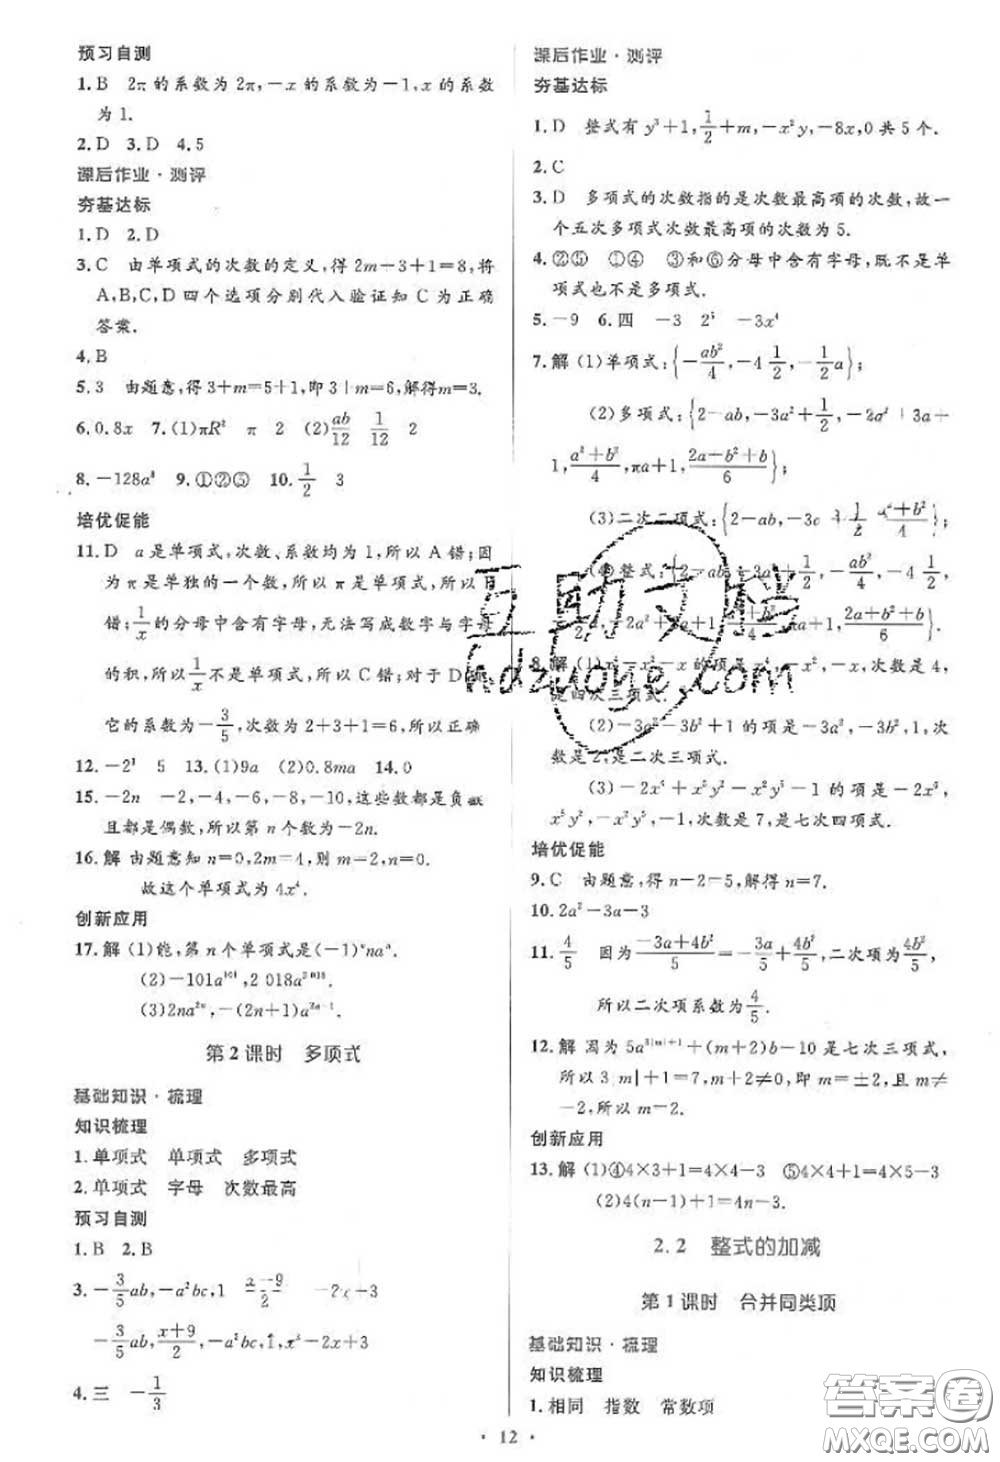 预习自测
1.B 2π的系数为2π,-x的系数为-1,x的系数
为1.
2.D 3.D 4.5
课后作业·测评
夯基达标
1.D 2.D
3.C 由单项式的次数的定义,得2m-3+1=8,将
A,B,C,D四个选项分别代入验证知C为正确
答案.
4.B
5.3 由题意,得3+m=5+1,即3+m=6,解得m=3.
6.0.8x 7.(1)πR² π 2 (2)ab/12 1/12 2
8.-128a⁸ 9.①②⑤ 10.1/2 3
培优促能
11.D a是单项式,次数、系数均为1,所以A错;因
为π是单独的一个数,所以π是单项式,所以B
错;1/x的分母中含有字母,无法写成数字与字母
的积,所以1/x不是单项式,所以C错;对于D,
它的系数为-3/5,次数为2+3+1=6,所以正确
12. 5 13.(1)9a (2)0.8ma 14.0
15.-2n -2,-4,-6,-8,-10,这些数都是负数
且都是偶数,所以第n个数为-2n.
16.解 由题意知n=0,2m=4,则m=2,n=0.
故这个单项式为4x⁴.
创新应用
17.解 (1)能,第n个单项式是(-1)ⁿnaⁿ.
(2)-101a¹⁰¹,2 018a²⁰¹⁸.
(3)2na²ⁿ,-(2n+1)a
第2课时 多项式
基础知识·梳理
知识梳理
1.单项式 单项式 多项式
2.单项式 字母 次数最高
预习自测
1.B 2.B
3.-3/5ab,-a²bc,1 -2x+3
-3/5ab,x+9/2,-a²bc,1,x³-2x+3
4.三 -1/3
课后作业·测评
夯基达标
1.D 整式有y³+1,1/2+m,-x²y,-8x,0共5个.
2.C
3.D 多项式的次数指的是次数最高项的次数,故一
个五次多项式次数最高项的次数为5.
4.②⑤ ①④ ③和⑥分母中含有字母,既不是单
项式也不是多项式.
5.-9 6.四 -3 2⁵ -3x⁴
7.解 (1)单项式:{-ab²/4,-4 1/2,-1/2a};
(2)多项式:{2-ab,-3a²+1/2,-2a²+3a+
1,a²+b²/4,πa+1,2a+b²+b/6};
(3)二次二项式:{2-ab,-3a²+1/2,a²+b²/4};
(4)整式:{2-ab,-3a²+1/2,-ab²/4,-4 1/2,
-2a²+3a+1,2a+b²+b/6}.
8.解 (1)x⁴-x²-x的项是x⁴,-x²,-x,次数是4,
是四次三项式.
(2)-3a²-3b²+1的项是-3a²,-3b²,1,次
数是2,是二次三项式.
(3)-2x⁶+x⁵y²-x²y⁵-1的项是-2x⁶,
x⁵y²,-x²y⁵,-1,次数是7,是七次四项式.
培优促能
9.C 由题意,得n-2=5,解得n=7.
10.2a²-3a-3
11.4/5 因为-3a+4b²/5=-3a/5+4b²/5,二次项为4b²/5,
所以二次项系数为4/5.
12.解 因为5a³|m|+1+(m+2)b-10是七次三项式,
所以3|m|+1=7,m+2≠0,即m=±2,且m≠
-2,所以m=2.
创新应用
13.解 (1)④4×3+1=4×4-3 ⑤4×4+1=4×5-3
(2)4(n-1)+1=4n-3
2.2 整式的加减
第1课时 合并同类项
基础知识·梳理
知识梳理
1.相同 指数 常数项
·12·
互助文档
hdzuone.com
答案圈
MXQE.COM